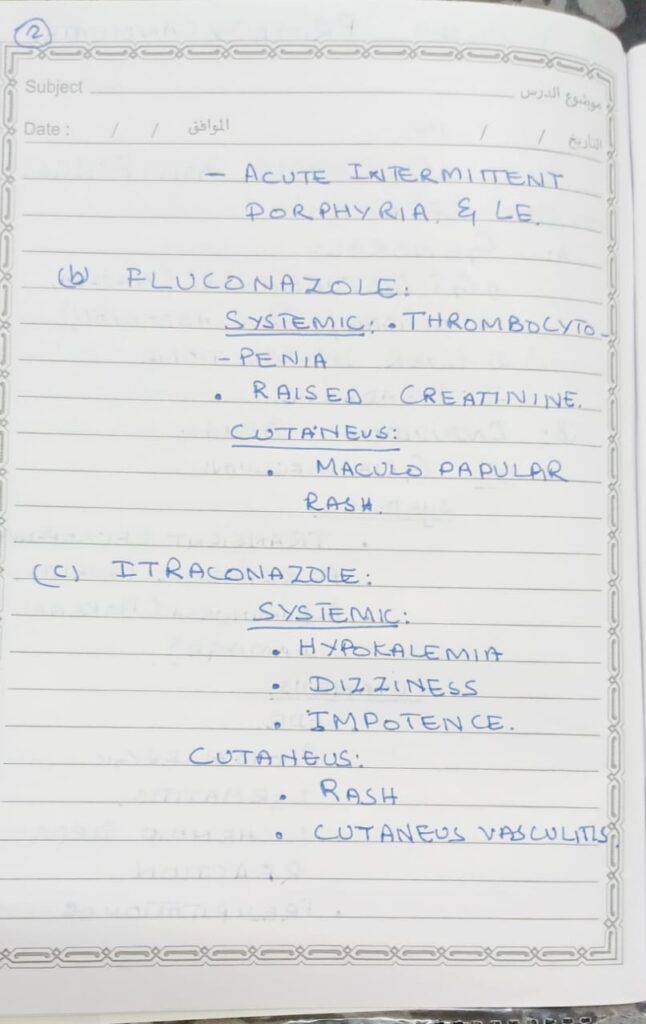 2
Subject موضوع الدرس
Date : / / الموافق / / التاريخ
- ACUTE INTERMITTENT
PORPHYRIA. & LE.
(b) FLUCONAZOLE:
SYSTEMIC: • THROMBOCYTO-
- PENIA
• RAISED CREATININE.
CUTANEUS:
• MACULO PAPULAR
RASH.
(C) ITRACONAZOLE:
SYSTEMIC:
• HYPOKALEMIA
• DIZZINESS
• IMPOTENCE.
CUTANEUS:
• RASH
• CUTANEUS VASCULITIS.